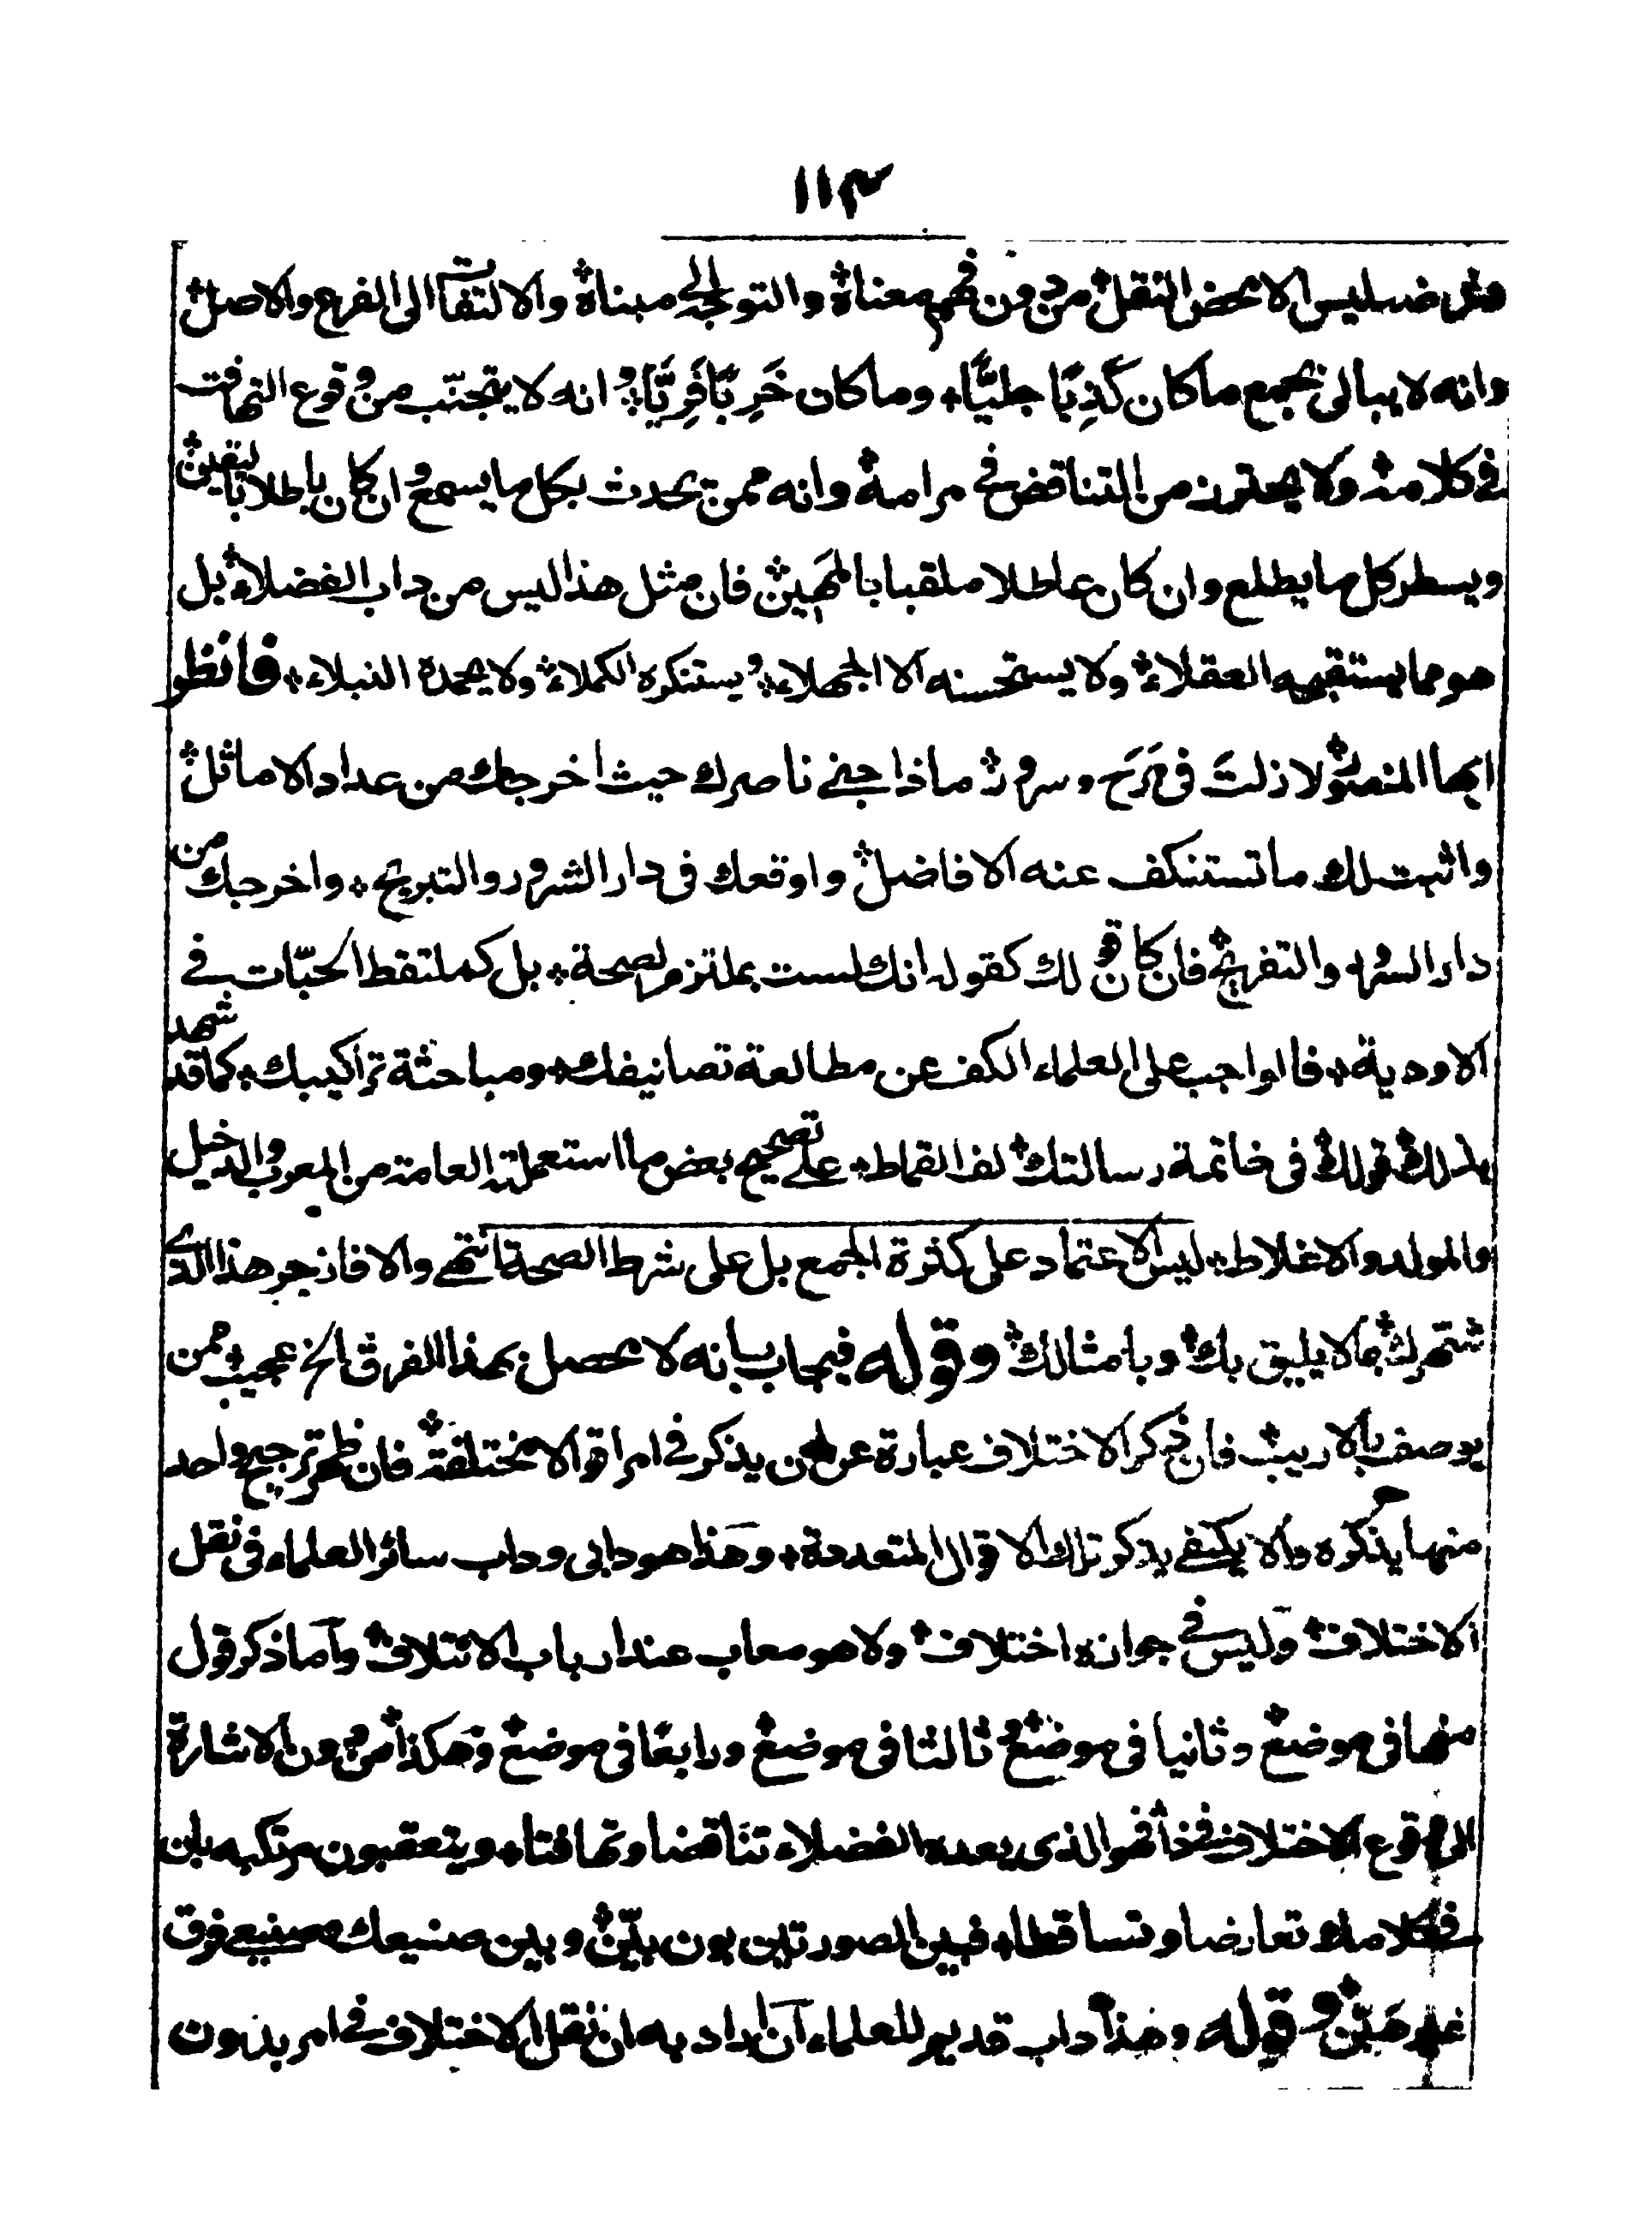 ١١٣
غرضه ليس الا محض النقل من دون فهم معناه والتوجه الى مبناه والالتفات الى الفرع والاصل
وانه لا يبالى بجمع ما كان كَذِبًا جليًّا وما كان خَرِبًا فَرِيًّا وانه لا يتجنّب من وقوع التهافت
فى كلامه ولا يحترز من التناقض فى مرامه وانه ممن يحدث بكل ما يسمع وان كان باطلا باليقين
ويسطر كل ما يطلع وان كان عاطلا ملقبا بالمَهين فان مثل هذا ليس من داب الفضلاء بل
هو مما يستقبحه العقلاء ولا يستحسنه الا الجهلاء ويستنكره الكملاء ولا يحمده النبلاء فانظر
ايها المنصور لا زلتَ فى مَرَح وسرور ماذا جنى ناصرك حيث اخرجك من عداد الاماثل
واثبت لك ما تستنكف عنه الافاضل واوقعك فى دار الشرور والتبريح واخرجك من
دار السرور والتفريح فان كان قولك كقوله انك لست بملتزم لصحة بل كملتقط الحبّات فى
الاودية فالواجب على العلماء الكف عن مطالعة تصانيفك ومباحثة تراكيبك كما قد شهد
بذلك قولك فى خاتمة رسالتك لف القماط على تصحيح بعض ما استعملته العامة من المعرب والدخيل
والمولد والاغلاط ليس الاعتماد على كثرة الجمع بل على شرط الصحة انتهى والا فازجر هذا الذى
شتهرك بما لا يليق بك وبامثالك وقوله فيجاب بانه لا يحصل بهذا الفرق الخ عجيب ممن
يوصف بالاريب فان ذكر الاختلاف عبارة عن ان يذكر فى امر اقوالا مختلفة فان ظهر ترجيح واحد
منها يذكره والا يكتفى بذكر تلك الاقوال المتعددة وهذا هو دابى وداب سائر العلماء فى نقل
الاختلاف وليس فى جوازه اختلاف ولا هو معاب عند ارباب الائتلاف واما ذكر قول
منها فى موضع وثانيا فى موضع وثالثا فى موضع ورابعًا فى موضع وهكذا من دون الاشارة
الى وقوع الاختلاف فهو الذى يعده الفضلاء تناقضا وتهافتا ويتعقبون مرتكبه بان
فى كلامه تعارضا وتساقطا فبين الصورتين بون بيّن وبين صنيعك وصنيعى فرق
غير هَيّن وقوله وهذا داب قديم للعلماء ان اراد به ان نقل الاختلاف فى امر بدون